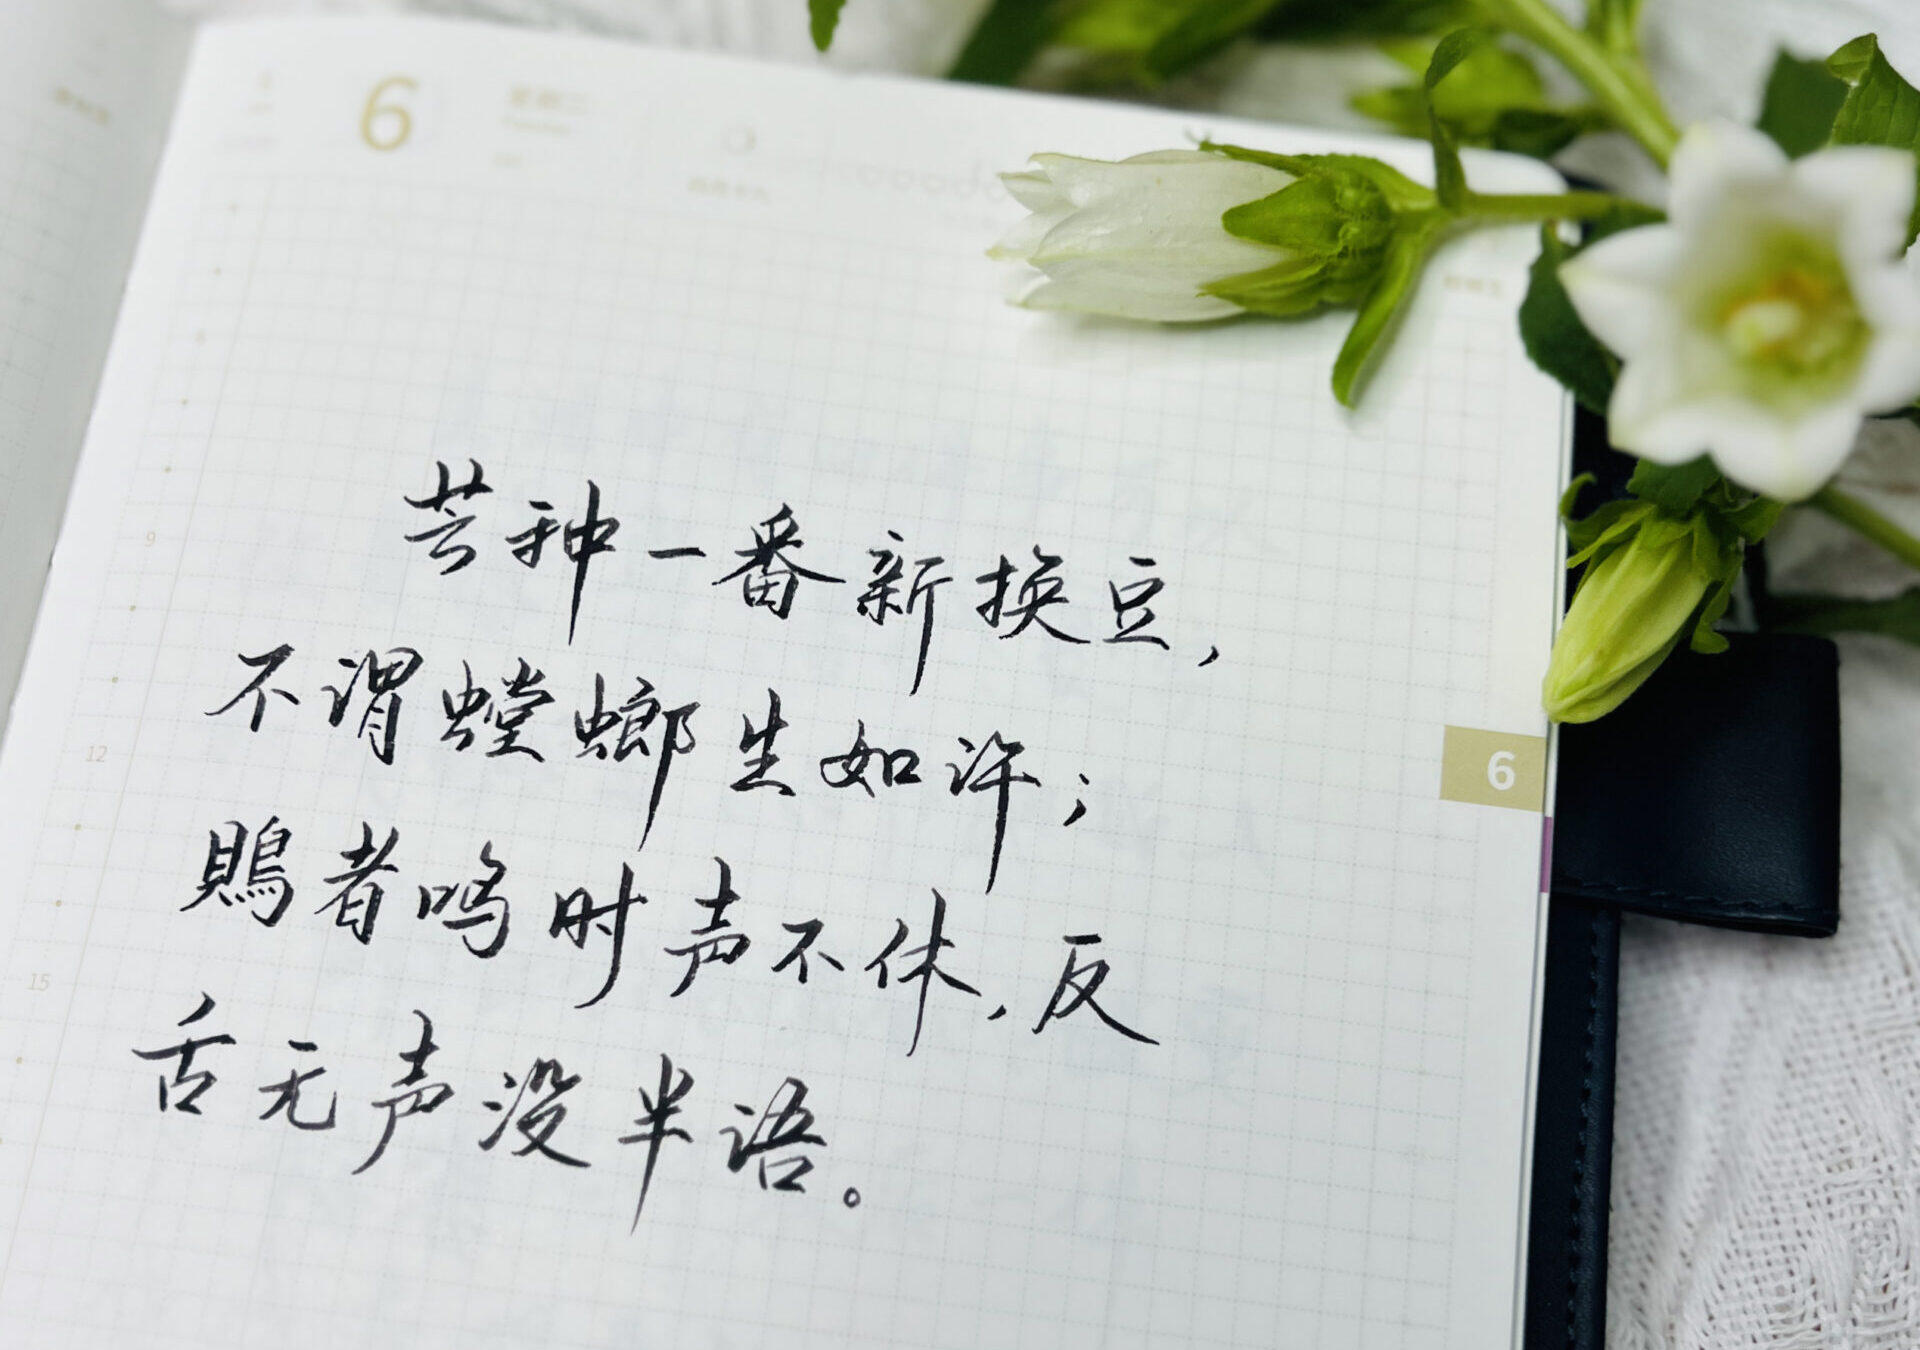 6
芒种一番新换豆，
不谓螳螂生如许；
鵙者鸣时声不休，反
舌无声没半语。
9
12
15
6